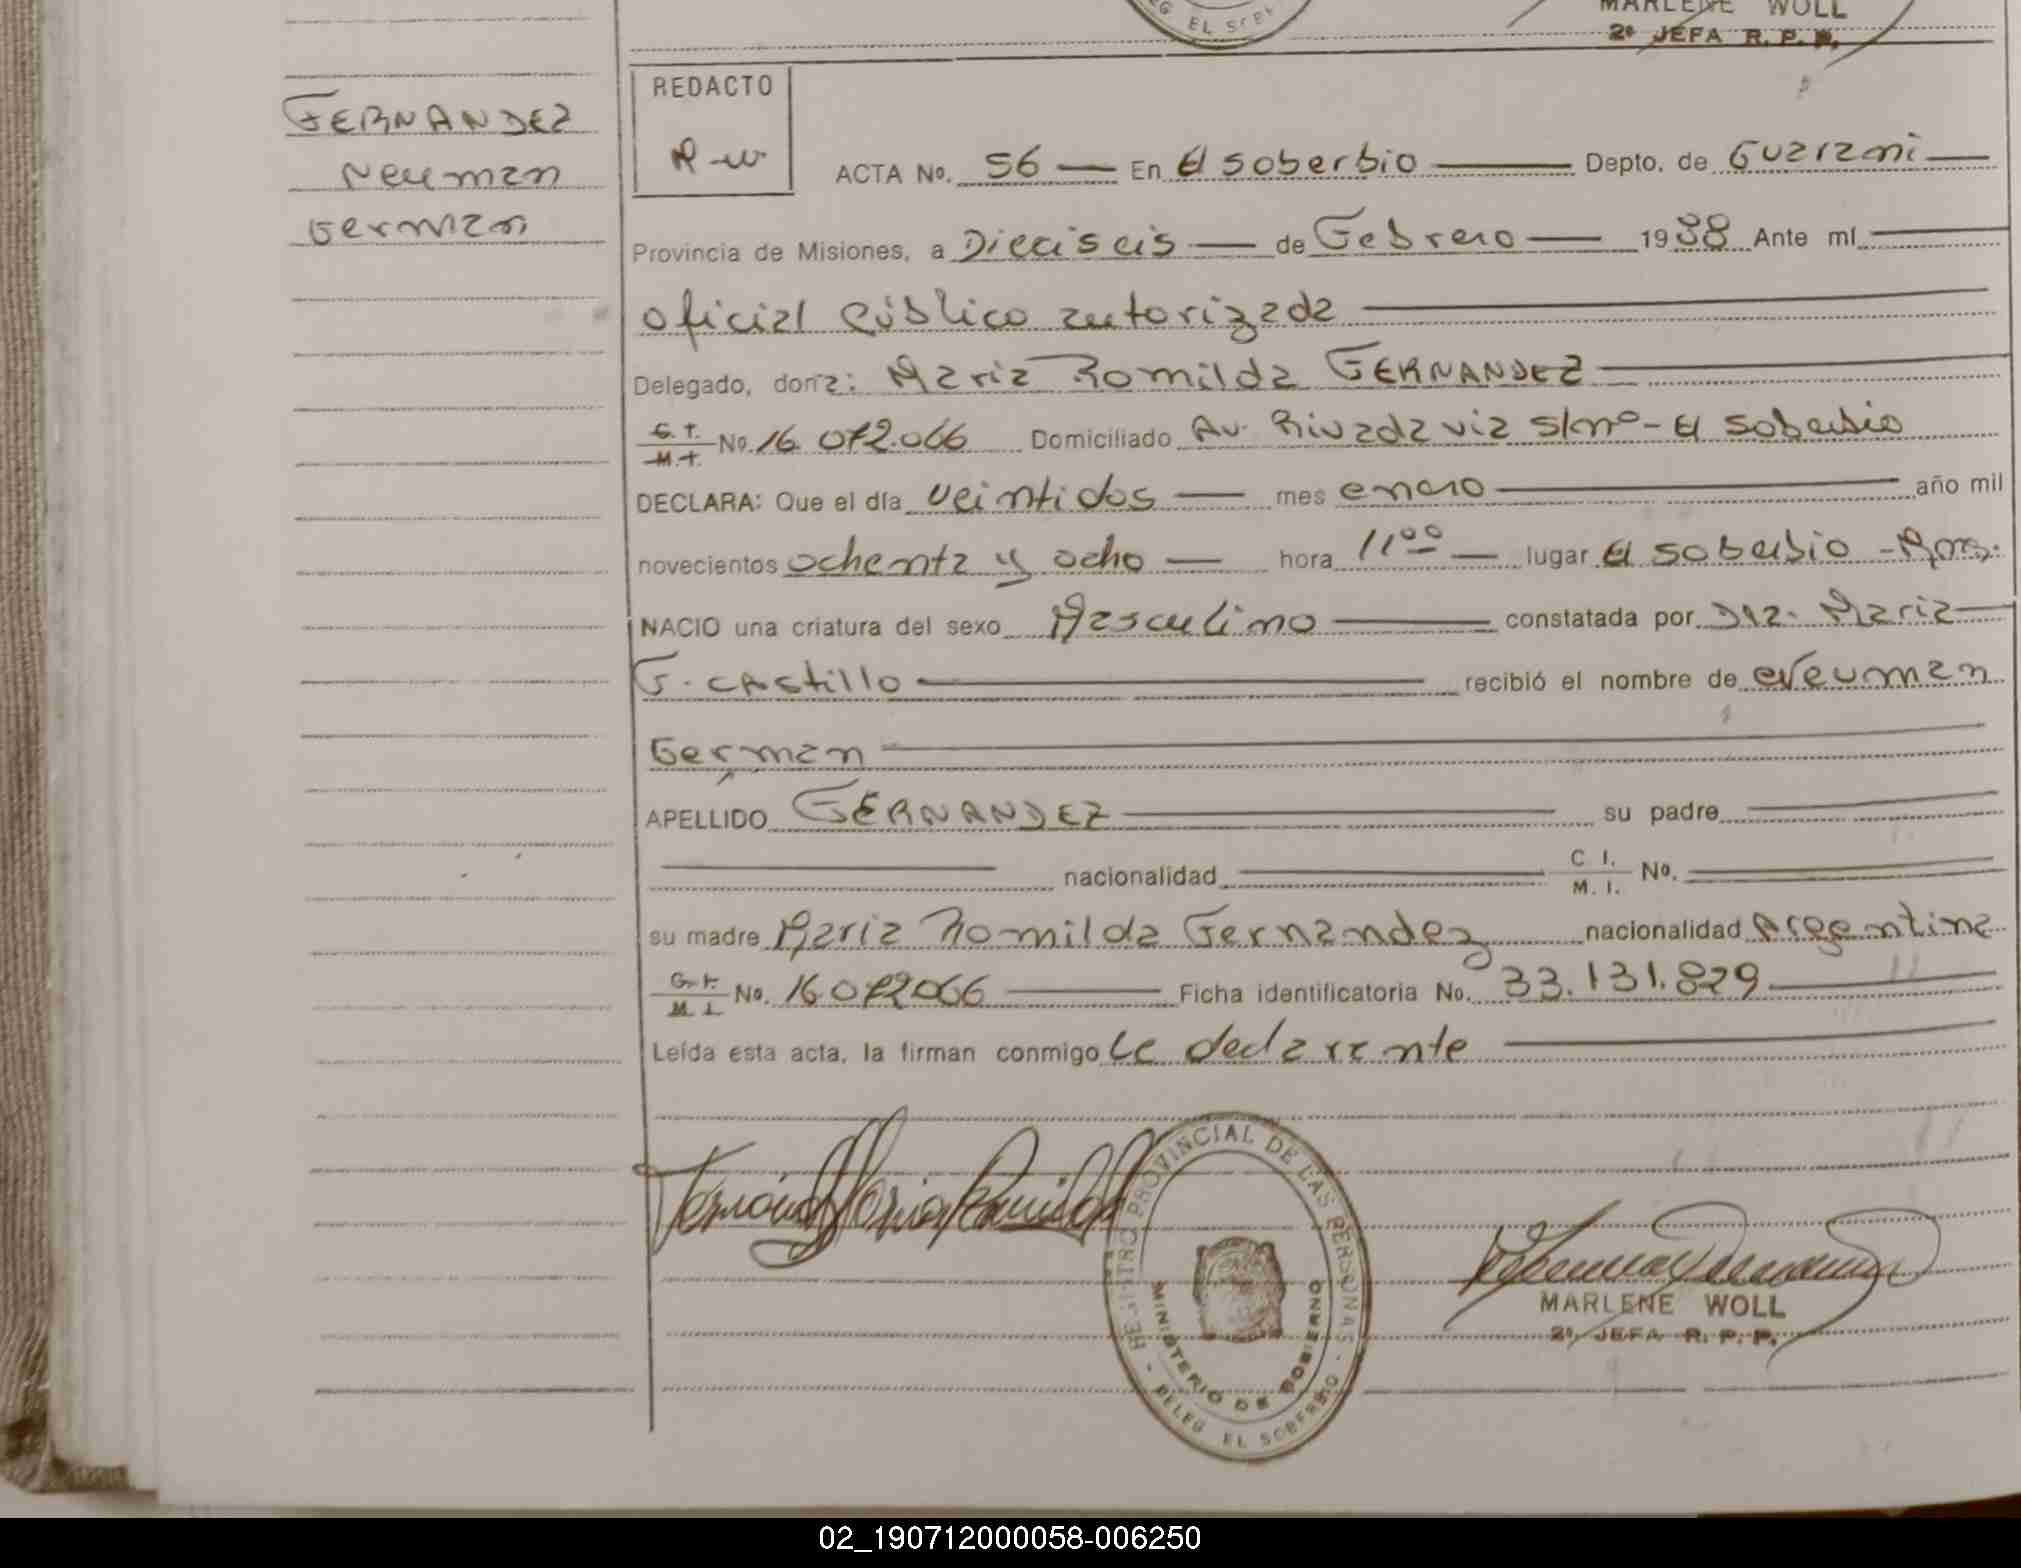 MARLENE WOLL
2º JEFA R. P. P.
FERNANDEZ
Neuman
German
REDACTO
ACTA No. 56 En El Soberbio Depto. de Guarani
Provincia de Misiones, a Dieciseis de Febrero 1988 Ante mí
oficial Público autorizada
Delegado, doña: Maria Romilda FERNANDEZ
No. 16.072.066 Domiciliado Av. Rivadavia s/nº - El Soberbio
DECLARA: Que el día veintidos mes enero año mil
novecientos ochenta y ocho hora 11ºº lugar El Soberbio - Mnes.
NACIO una criatura del sexo Masculino constatada por Dra. Maria
G. Castillo recibió el nombre de Neuman
German
APELLIDO FERNANDEZ su padre
nacionalidad C I. M. I. No.
su madre Maria Romilda Fernandez nacionalidad Argentina
No. 16072066 Ficha identificatoria No. 33.131.829
Leída esta acta, la firman conmigo la declarante
REGISTRO PROVINCIAL DE LAS PERSONAS - DELEG EL SOBERBIO -
MINISTERIO DE GOBIERNO
MARLENE WOLL
2º JEFA R. P. P.
02_190712000058-006250